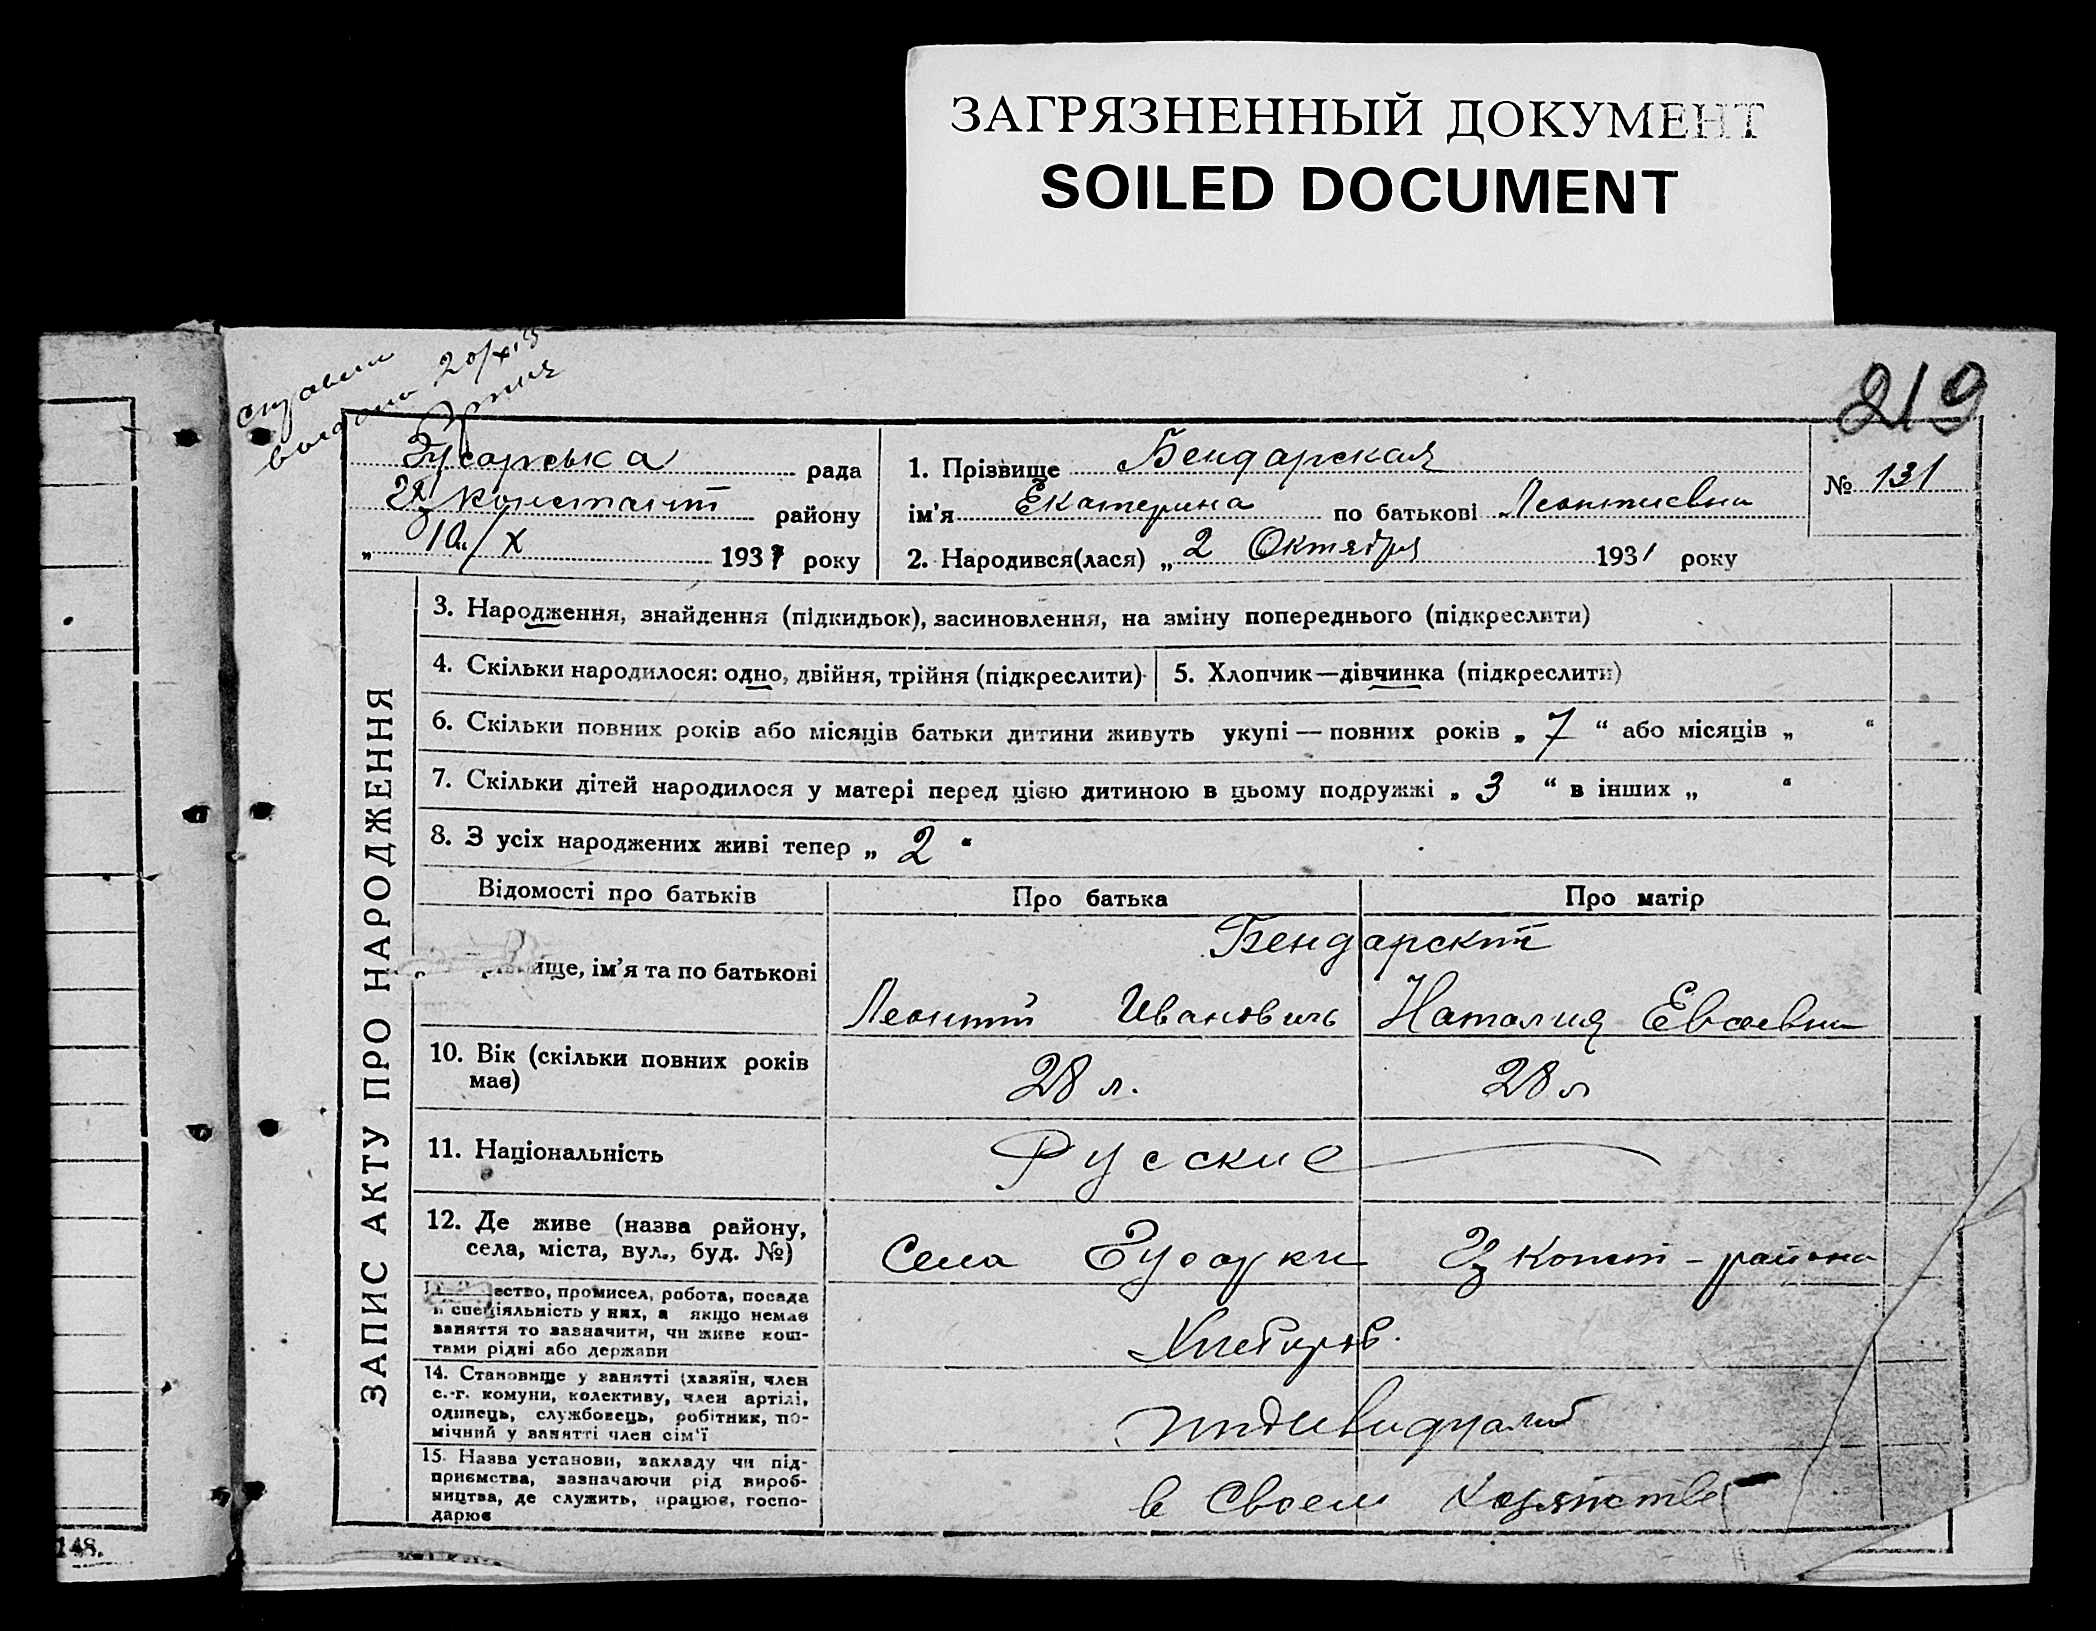 ЗАГРЯЗНЕННЫЙ ДОКУМЕНТ
SOILED DOCUMENT
219
рада
района
1. Прізвище Бендарская
№ 131
ім'я Екатерина по батькові Леонтиевна
10/X 1931 року
2. Народився(лася) „ 2 Октября 1931 року
ЗАПИС АКТУ ПРО НАРОДЖЕННЯ
3. Народження, знайдення (підкидьок), засиновлення, на зміну попереднього (підкреслити)
4. Скільки народилося: одно, двійня, трійня (підкреслити)
5. Хлопчик—дівчинка (підкреслити)
6. Скільки повних років або місяців батьки дитини живуть укупі — повних років „ 7 “ або місяців „ “
7. Скільки дітей народилося у матері перед цією дитиною в цьому подружжі „ 3 “ в інших „ “
8. З усіх народжених живі тепер „ 2 “
Відомості про батьків
Про батька
Про матір
Бендарскій
ім'я та по батькові
Леонтій Иванович
Наталия
10. Вік (скільки повних років
має)
28 л.
28 л
11. Національність
Русские
12. Де живе (назва району,
села, міста, вул., буд. №)
Села Гусарки
промисел, робота, посада
й спеціяльність у них, а якщо немає
заняття то зазначити, чи живе кош-
тами рідні або держави
Хлебороб.
14. Становище у занятті (хазяїн, член
с.-г. комуни, колективу, член артілі,
одинець, службовець, робітник, по-
мічний у занятті член сім'ї
15. Назва установи, закладу чи під-
приємства, зазначаючи рід вироб-
ництва, де служить, працює, госпо-
дарює
в своем хозяйстве
148.